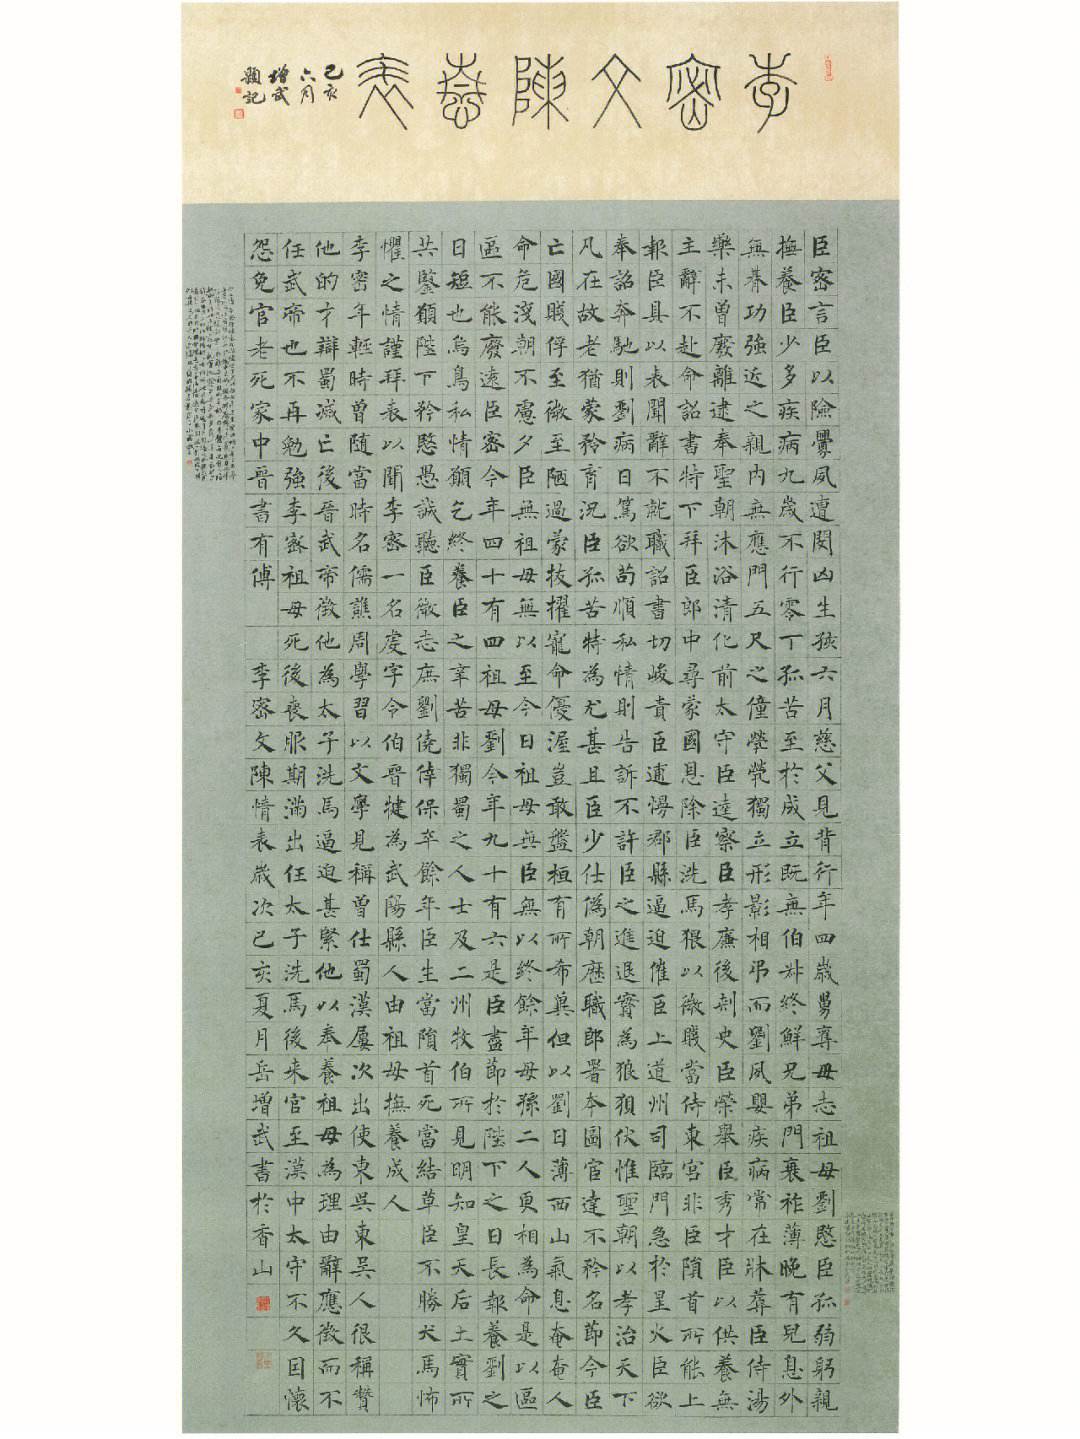 李密文陳情表
己亥
六月
增武
題記
臣密言臣以險釁夙遭閔凶生孩六月慈父見背行年四歲舅奪母志祖母劉愍臣孤弱躬親
撫養臣少多疾病九歲不行零丁孤苦至於成立既無伯叔終鮮兄弟門衰祚薄晚有兒息外
無朞功強近之親內無應門五尺之僮煢煢獨立形影相弔而劉夙嬰疾病常在牀蓐臣侍湯
藥未曾廢離逮奉聖朝沐浴清化前太守臣逵察臣孝廉後刺史臣榮舉臣秀才臣以供養無
主辭不赴命詔書特下拜臣郎中尋蒙國恩除臣洗馬猥以微職當侍東宮非臣隕首所能上
報臣具以表聞辭不就職詔書切峻責臣逋慢郡縣逼迫催臣上道州司臨門急於星火臣欲
奉詔奔馳則劉病日篤欲苟順私情則告訴不許臣之進退實為狼狽伏惟聖朝以孝治天下
凡在故老猶蒙矜育況臣孤苦特為尤甚且臣少仕偽朝歷職郎署本圖宦達不矜名節今臣
亡國賤俘至微至陋過蒙拔擢寵命優渥豈敢盤桓有所希冀但以劉日薄西山氣息奄奄人
命危淺朝不慮夕臣無祖母無以至今日祖母無臣無以終餘年母孫二人更相為命是以區
區不能廢遠臣密今年四十有四祖母劉今年九十有六是臣盡節於陛下之日長報養劉之
日短也烏鳥私情願乞終養臣之辛苦非獨蜀之人士及二州牧伯所見明知皇天后土實所
共鑒願陛下矜愍愚誠聽臣微志庶劉僥倖保卒餘年臣生當隕首死當結草臣不勝犬馬怖
懼之情謹拜表以聞李密一名虔字令伯晉犍為武陽縣人由祖母撫養成人
李密年輕時曾隨當時名儒譙周學習以文學見稱曾仕蜀漢屢次出使東吳東吳人很稱贊
他的才辯蜀滅亡後晉武帝徵他為太子洗馬逼迫甚緊他以奉養祖母為理由辭應徵而不
任武帝也不再勉強李密祖母死後喪服期滿出任太子洗馬後來官至漢中太守不久因懷
怨免官老死家中晉書有傳 李密文陳情表歲次己亥夏月岳增武書於香山